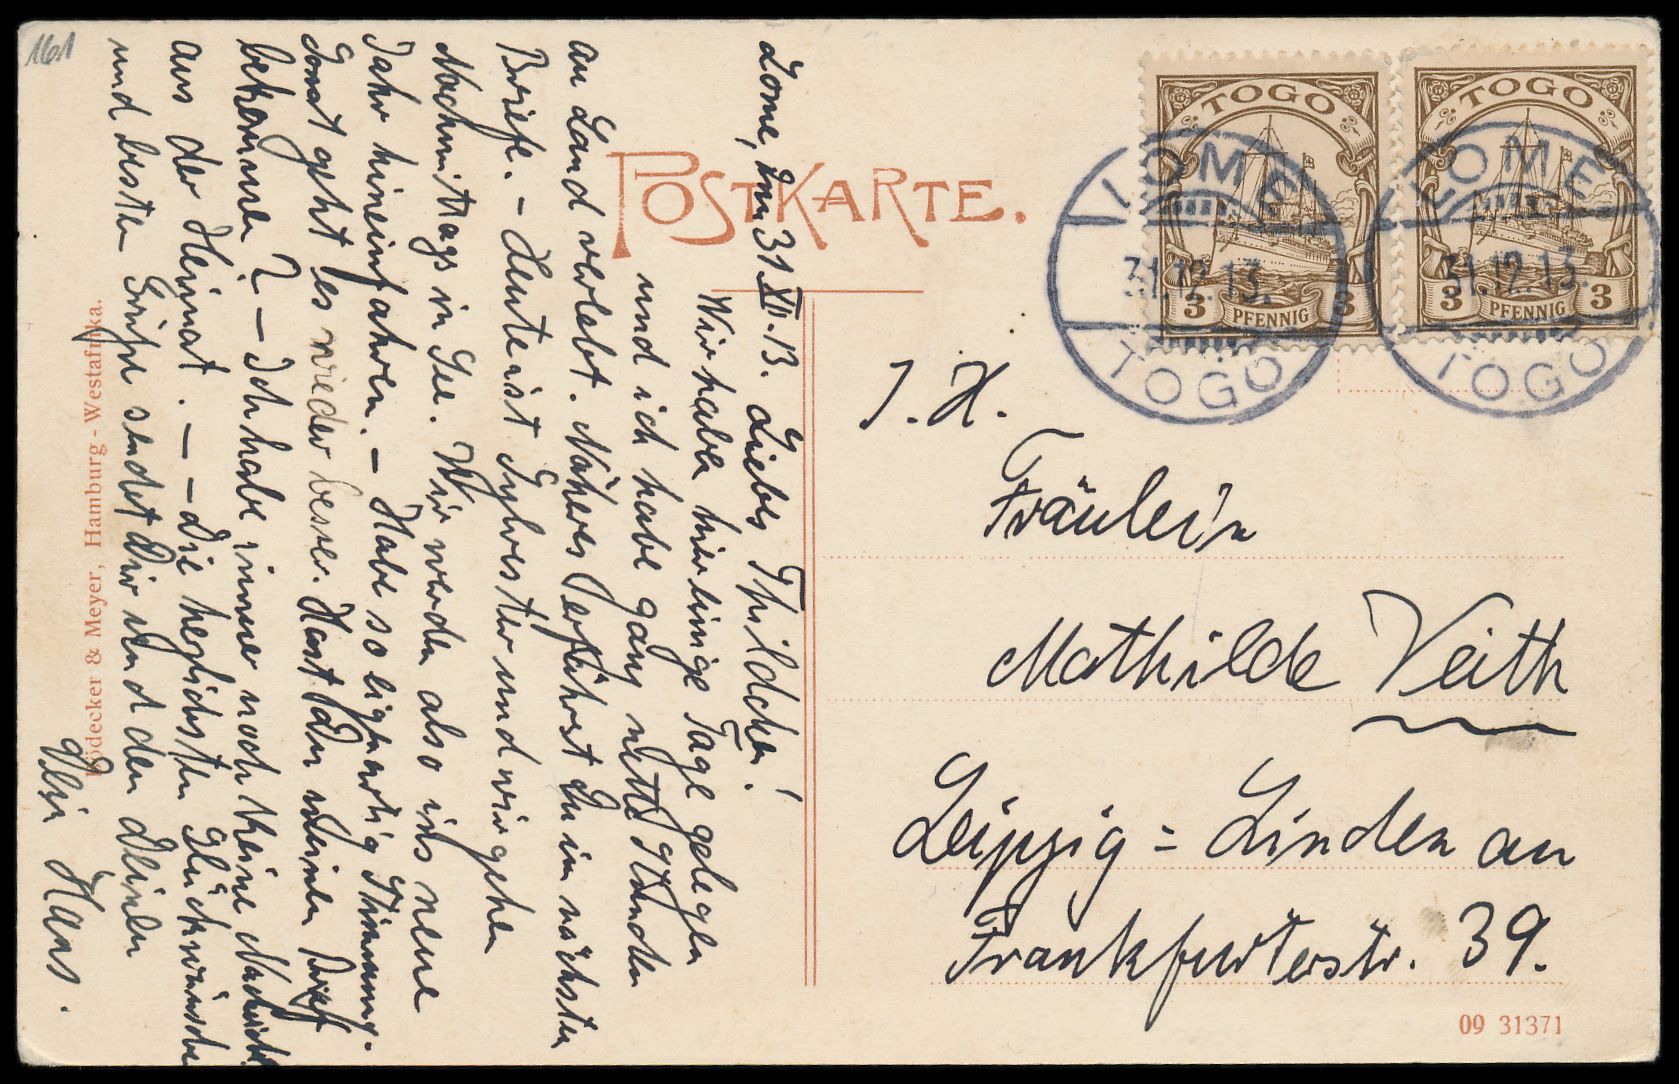 161
POSTKARTE.
TOGO
3 PFENNIG 3
TOGO
3 PFENNIG 3
LOME
31.12.13.
TOGO
LOME
31.12.13.
TOGO
Lome, den 31 XII. 13. Liebes Thildchen!
Wir haben hier einige Tage gelegen
und ich habe ganz nette Stunden
an Land verlebt. Näheres erfährst Du im nächsten
Briefe. – Heute ist Sylvester und wir gehen
Nachmittags in See. Wir werden also ins neue
Jahr hineinfahren. – Habe so eigenartig Stimmung.
Sonst geht es wieder besser. Hast Du meinen Brief
bekommen? – Ich habe immer noch keine Nachricht
aus der Heimat. – – Die herzlichsten Glückwünsche
und besten Grüße sendet Dir und den Deinen
Dein Hans.
J. H.
Fräulein
Mathilde Veith
Leipzig = Linden au
Frankfurterstr. 39.
Bödecker & Meyer, Hamburg - Westafrika.
09 31371